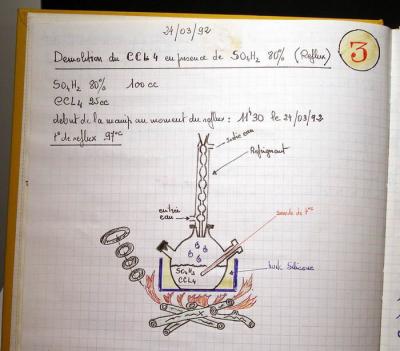 24/03/92
3
Demolition du CCL4 en presence de SO4H2 80% (Reflux)
SO4H2 80% 100cc
CCL4 25cc
debut de la manip au moment du reflux : 11h30 le 24/03/92
t° de reflux 97°C
Sortie eau
Refrigerant
entrée
eau
sonde de t°C
SO4H2
CCL4
huile Silicone